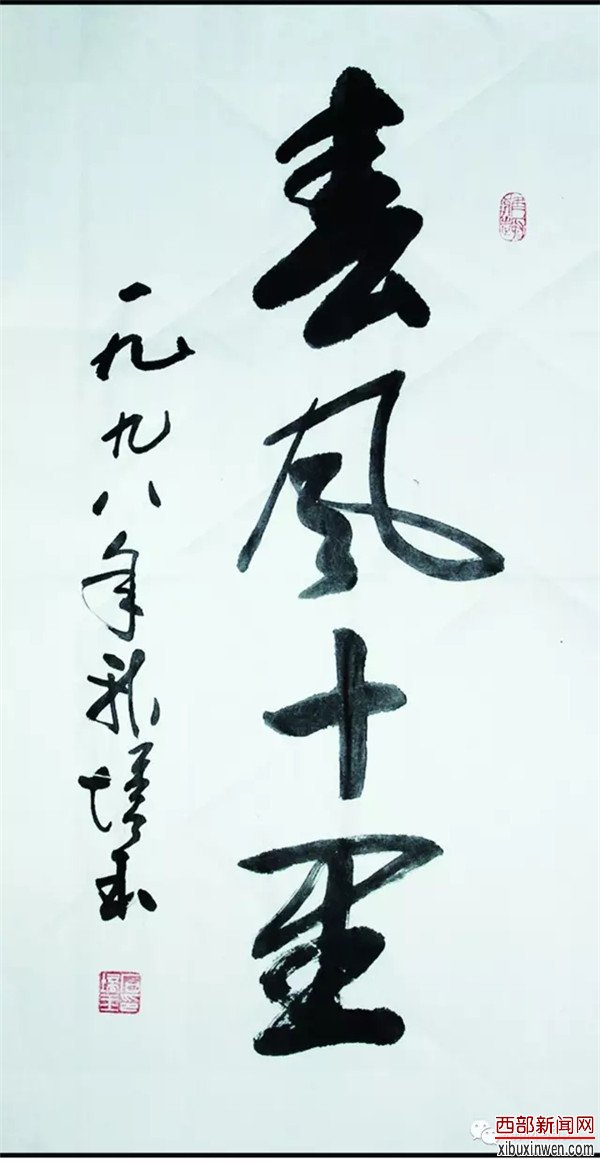 春风十里
一九九八年
西部新闻网
xibuxinwen.com